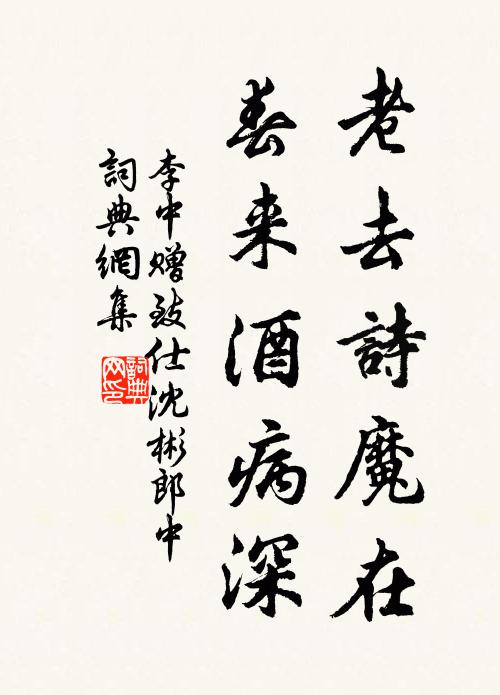 老去詩魔在
春来酒病深
李中贈致仕沈彬郎中
詞典網集
詞典网印